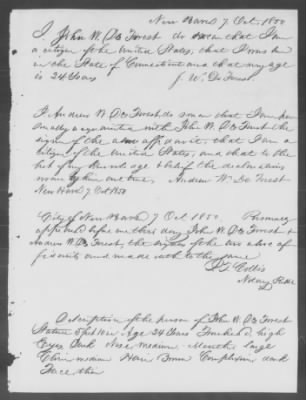 New Haven 7 Oct. 1850
I John W. De Forest do swear that I am
a citizen of the United States, that I was born
in the State of Connecticut and that my age
is 24 Years J. W. De Forest
I Andrew W. De Forest do swear that I am per-
sonally acquainted with John W. De Forest the
signer of the above affidavit, that I am a
citizen of the United States, and that to the
best of my knowledge & belief the declarations
made by him are true. Andrew W. De Forest
New Haven 7 Oct 1850
City of New Haven 7 Oct. 1850. Personally
appeared before me this day John W. De Forest &
Andrew W. De Forest, the signers of the two above af-
fidavits and made oath to the same
Notary Public
Description of the person of John W. De Forest
Stature 5 feet Age 24 Years Forehead, high
Eyes Dark Nose medium - Mouth large
Chin medium Hair Brown Complexion dark
Face thin